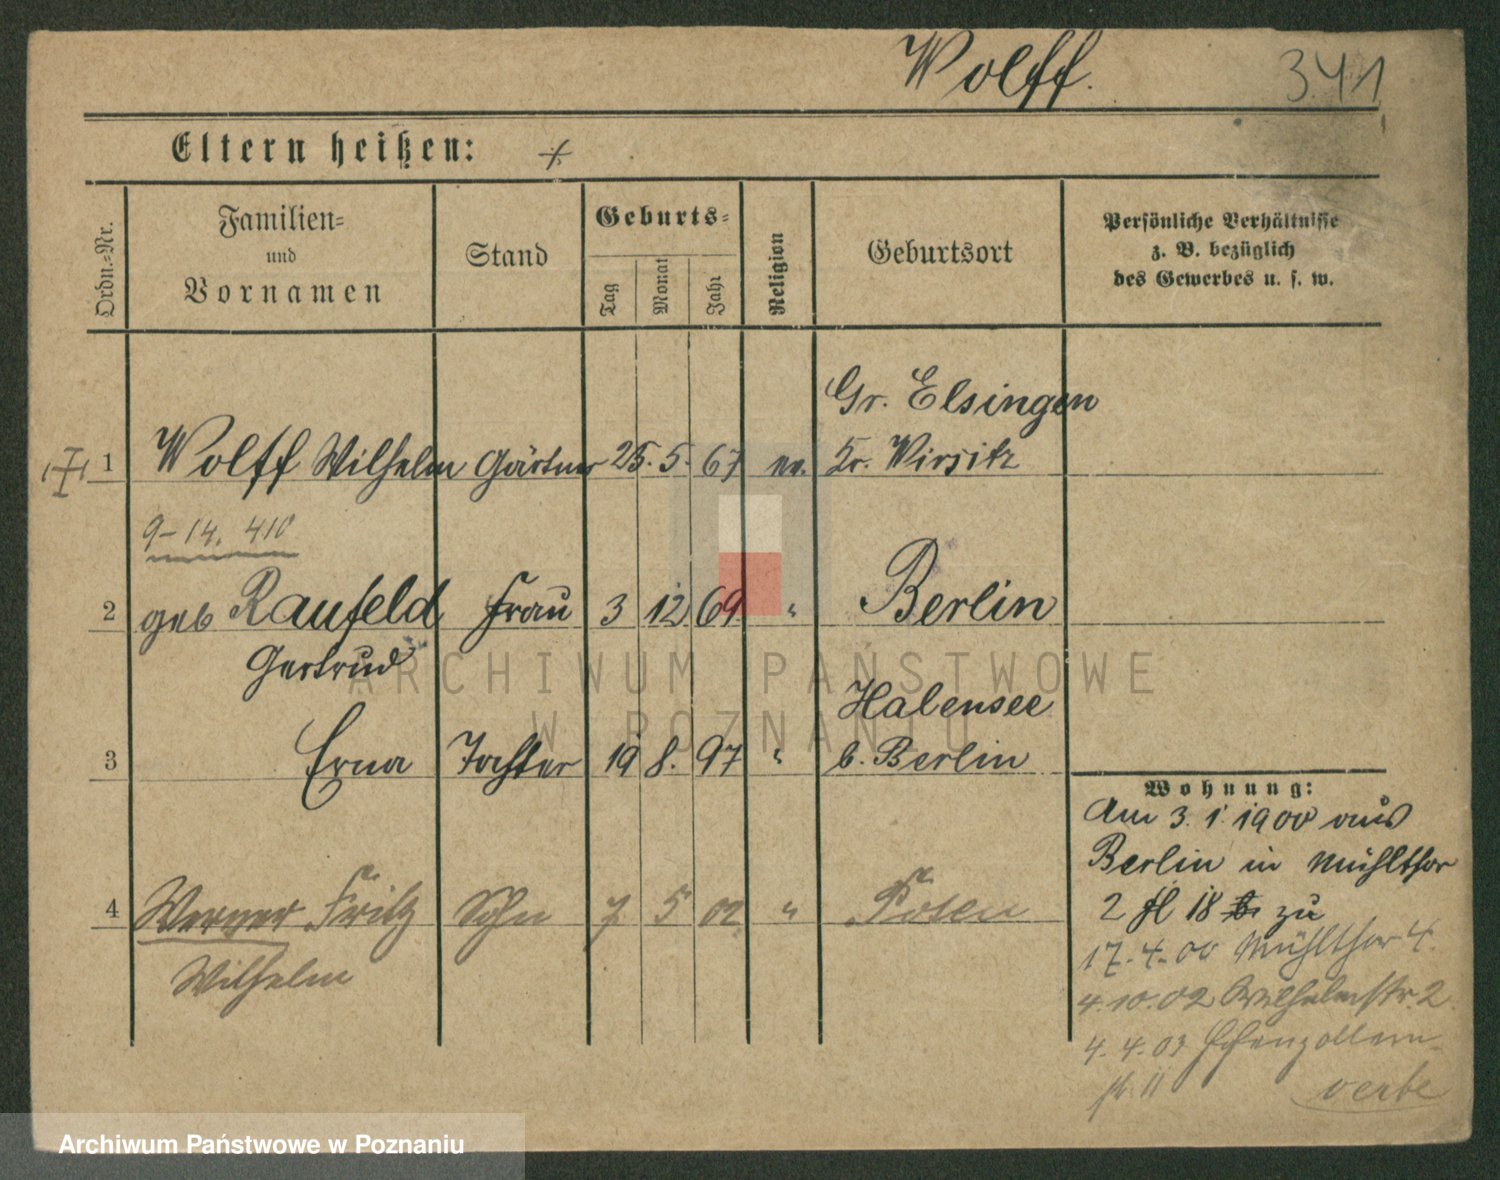 Wolff.
341
Eltern heißen: +
Ordn.-Nr.
Familien-
und
Vornamen
Stand
Geburts-
Tag
Monat
Jahr
Religion
Geburtsort
Persönliche Verhältnisse
z. B. bezüglich
des Gewerbes u. s. w.
Gr. Elsingen
1 Wolff Wilhelm Gärtner 25. 5. 67 ev. Kr. Wirsitz
9-14. 410
2 geb Raufeld Frau 3 12 69 " Berlin
Gertrud
Halensee
3 Erna Tochter 19 8. 97 " b. Berlin
Wohnung:
Am 3. 1. 1900 aus
Berlin in Mühlthor
4 Werner Fritz Sohn 7 5 02 " Posen
2 fl 18 zu
Wilhelm
17.4.00 Mühlthor 4.
4.10.02 Wilhelmstr. 2
4.4.03 Hohenzollern-
str. 11
ARCHIWUM PAŃSTWOWE
W POZNANIU
Archiwum Państwowe w Poznaniu